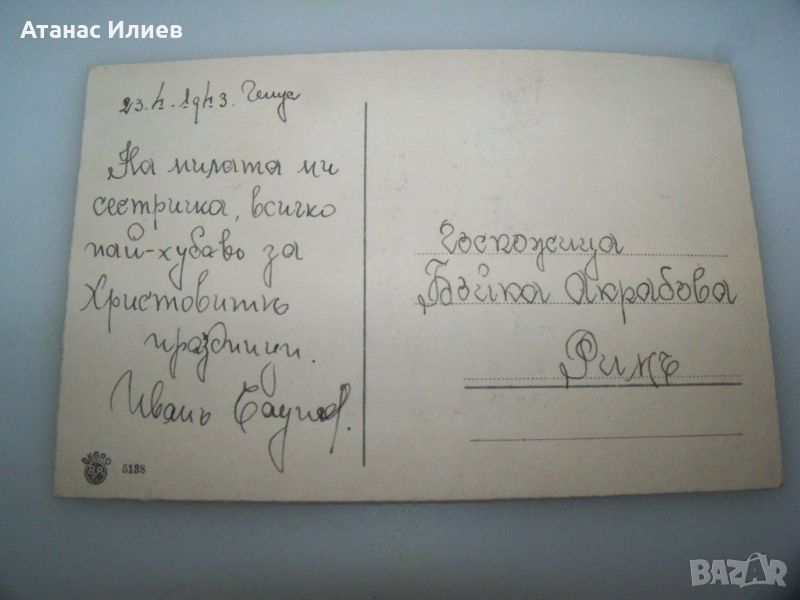 Атанас Илиев
23. 4. 1943.
На милата ми
сестричка, всичко
най-хубаво за
Христовитѣ
празници.
Иванъ
BEGRO
5138
Госпожица
Бойка Акрабова
Римъ
BAZAR